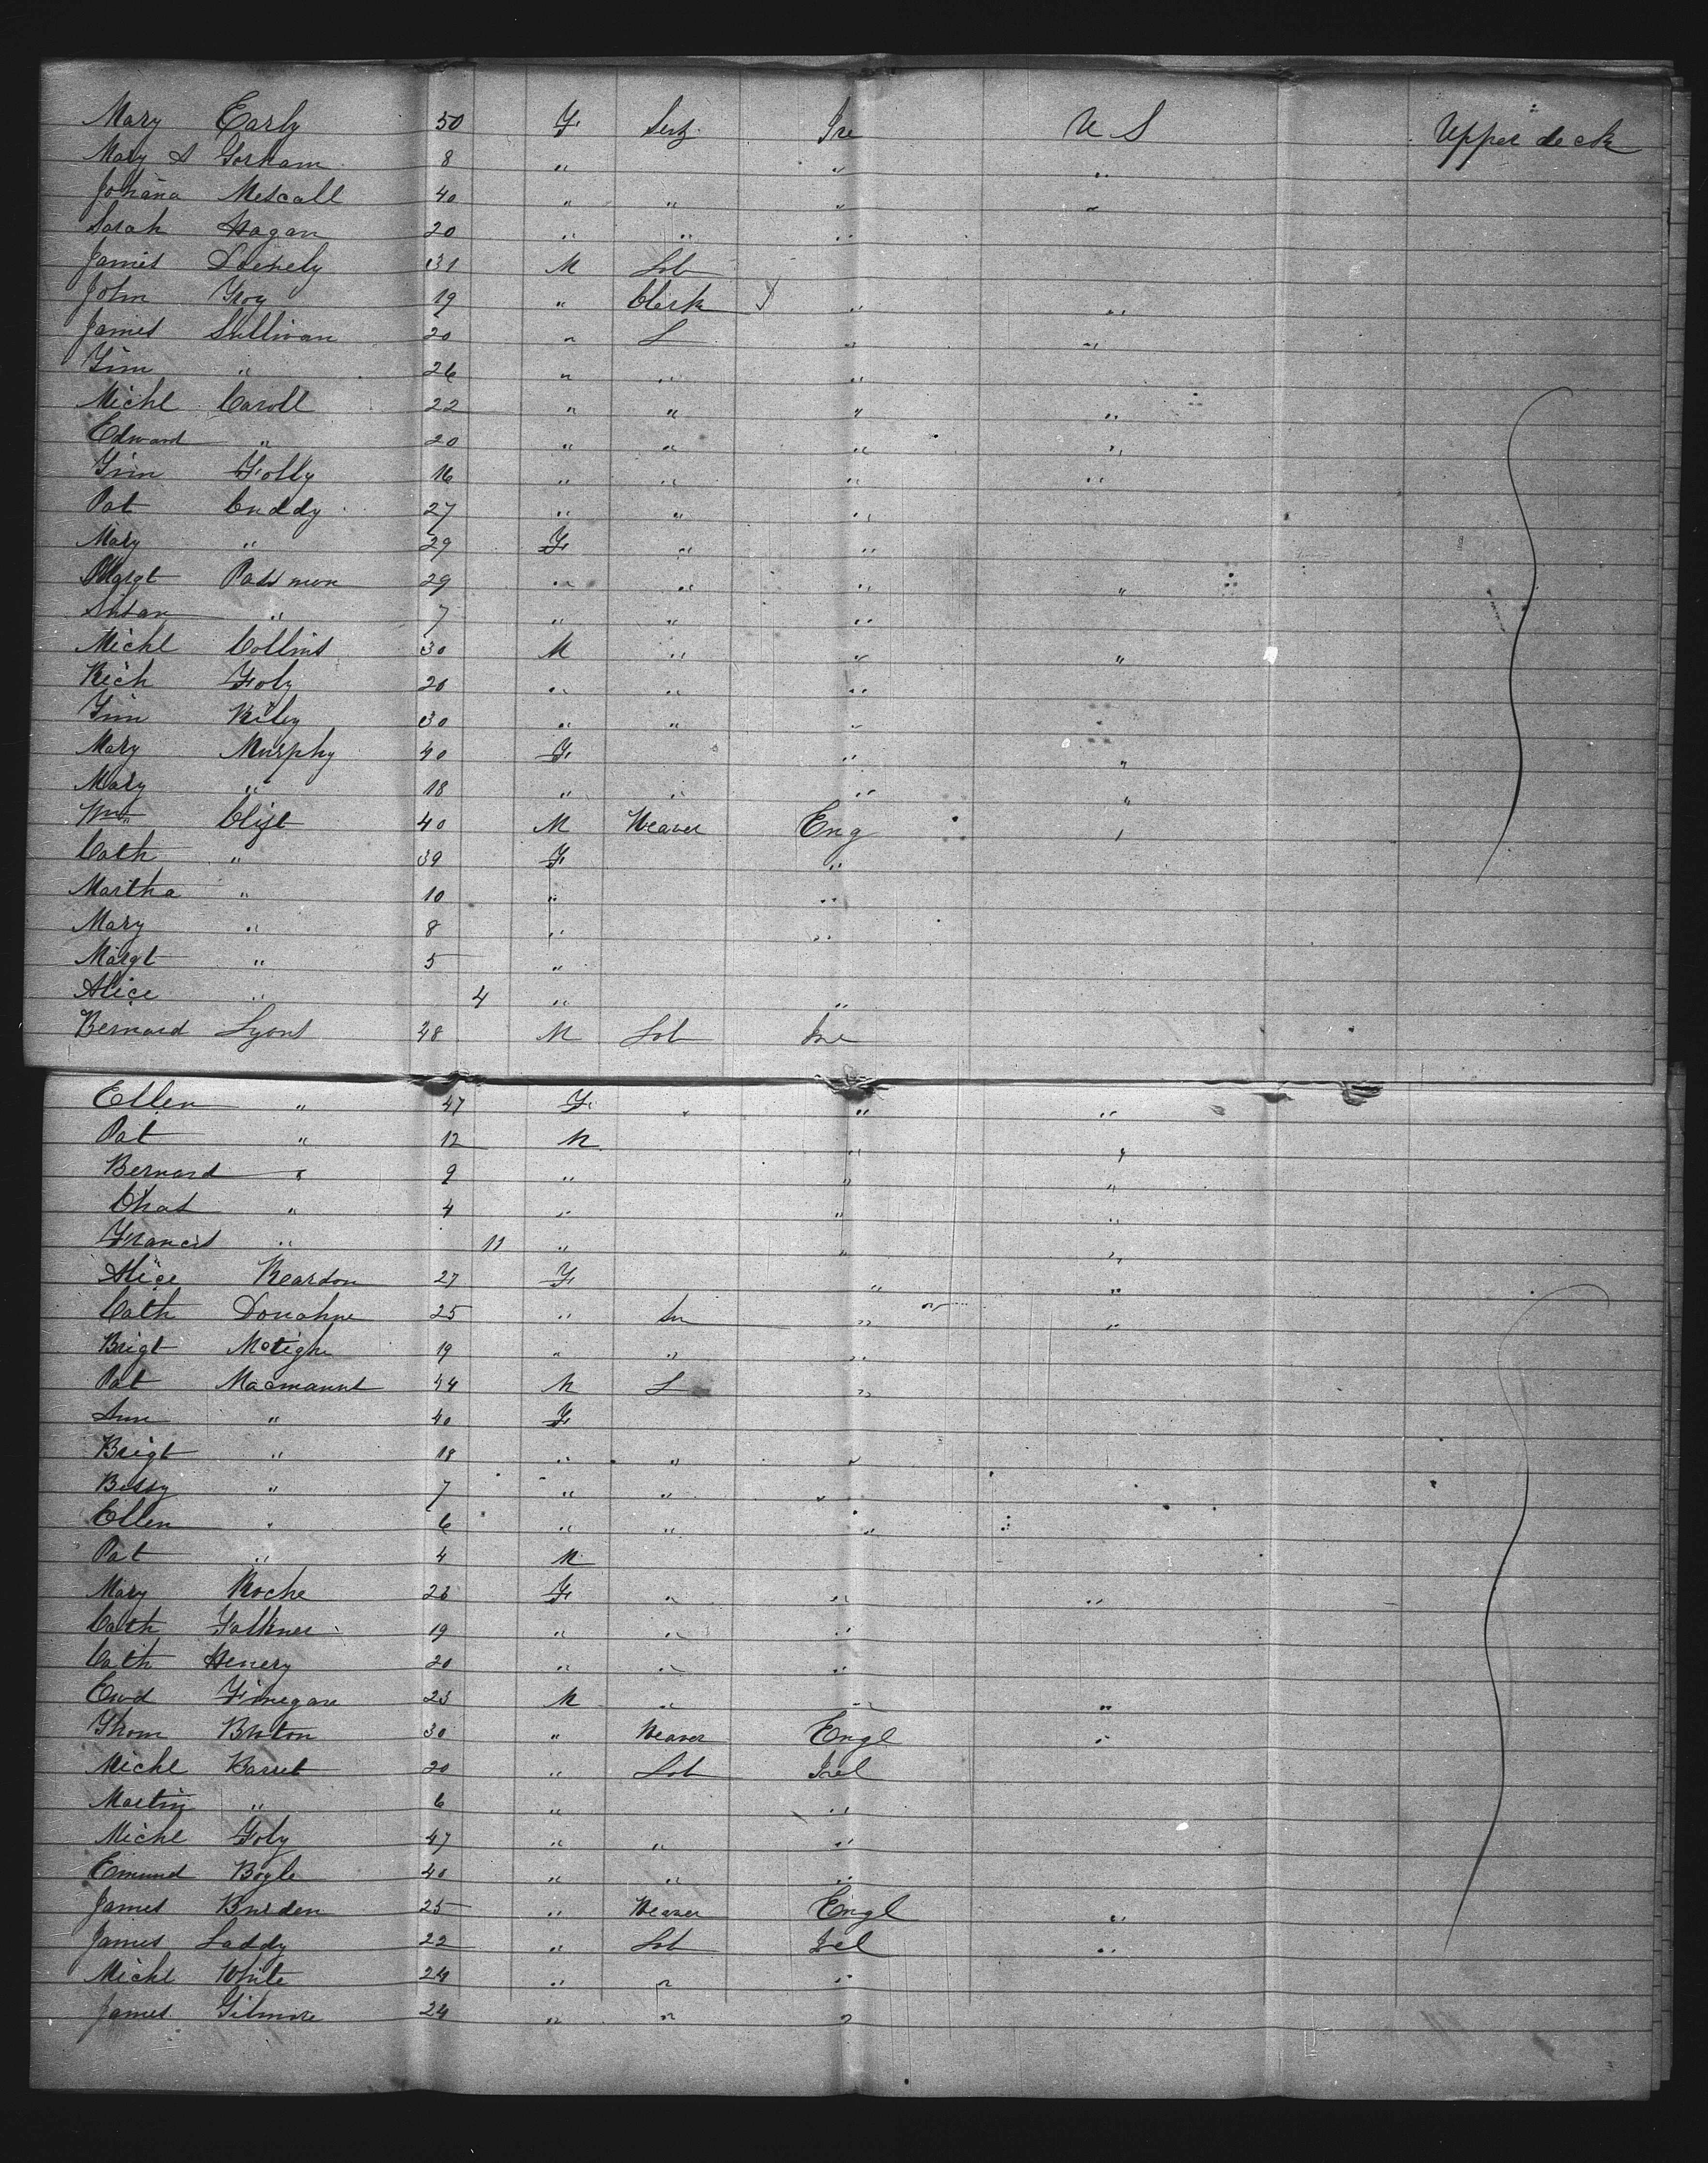 Mary Early 50 F Serv. Ire U S Upper deck
Mary A Gorham 8 " " "
Johana Metcall 40 " " " "
Sarah Hagan 20 " " "
James 31 M Lab
John Troy 19 " Clerk " "
James Sullivan 20 " L " "
Tim " 26 " " "
Michl Caroll 22 " " " "
Edward " 20 " " " "
Tim Folly 16 " " " "
Pat Cuddy 27 " " "
Mary " 29 F " "
Margt Passmon 29 " " " "
Susan " 7 " " "
Michl Collins 30 M " " "
Rich Foly 20 " " "
Tim Riley 30 " " "
Mary Murphy 40 F " "
Mary " 18 " " " "
Wm Clift 40 M Weaver Eng "
Cath " 39 F "
Martha " 10 " "
Mary " 8 " "
Margt " 5 "
Alice " 4 " "
Bernard Lyons 48 M Lab Ire
Ellen " 47 F " "
Pat " 12 M " "
Bernard " 9 " " "
Chas " 4 " " "
Francis " 11 " " "
Alice Reardon 27 F " "
Cath Donahue 25 " Sv " "
Brigt McTighe 19 " " "
Pat Macmanns 44 M L "
Ann " 40 F
Brigt " 18 " " "
Bessy " 7 " " "
Ellen " 6 " " "
Pat " 4 M
Mary Roche 23 F " " "
Cath Falkner 19 " " "
Cath Henery 20 " " "
Ewd Finegan 23 M " " "
Thom Buton 30 " Weaver Engl "
Michl Barret 20 " Lab Irel
Martin " 6 " "
Michl Foly 47 " " "
Emund Boyle 40 " " "
James Burden 25 " Weaver Engl "
James Laddy 22 " Lab Irel "
Michl White 24 " " "
James Gilmore 24 " " "